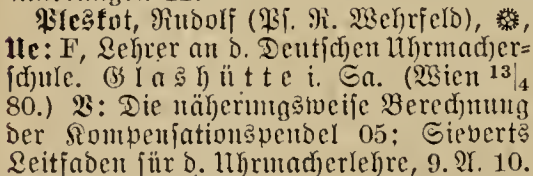 Pleskot, Rudolf (Ps. R. Wehrfeld), ,
Ue: F, Lehrer an d. Deutschen Uhrmacher=
schule. Glashütte i. Sa. (Wien 13|4
80.) V: Die näherungsweise Berechnung
der Kompensationspendel 05; Sieverts
Leitfaden für d. Uhrmacherlehre, 9. A. 10.